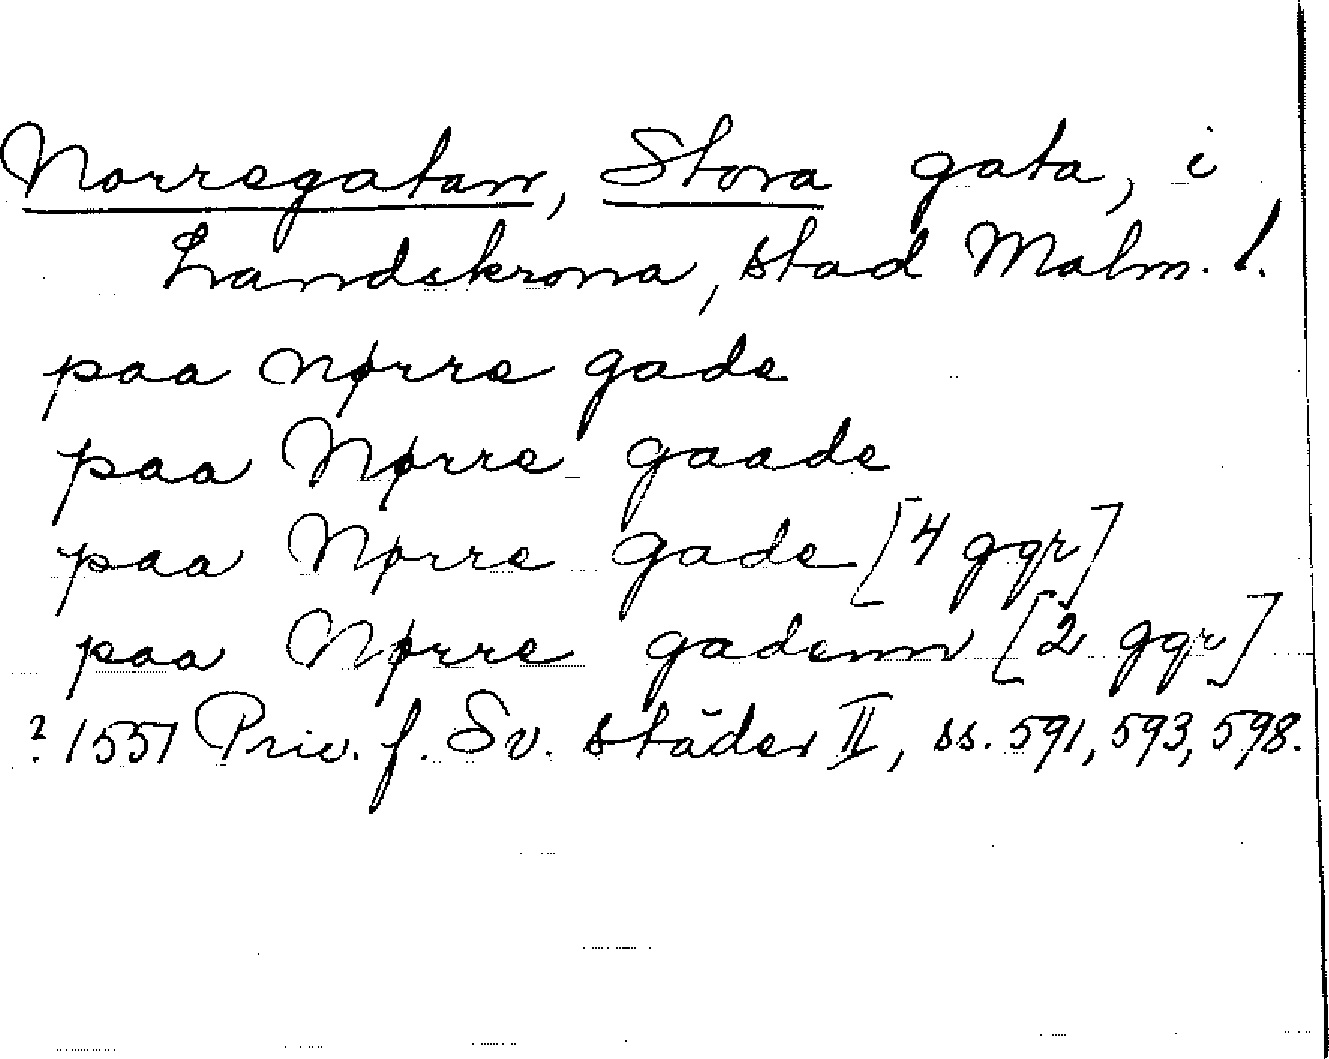 Norregatan, Stora gata, i
Landskrona, stad Malm. l.
paa nørre gade
paa Nørre gaade
paa Nørre gade [4 ggr]
paa Nørre gadenn [2 ggr]
? 1551 Priv. f. Sv. städer II, ss. 591, 593, 598.